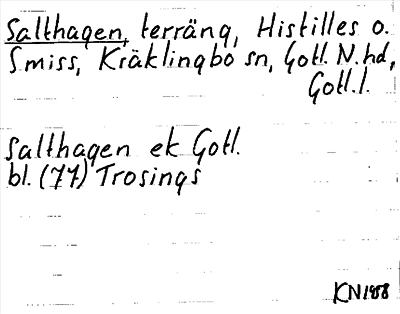 Salthagen, terräng, Histilles o.
Smiss, Kräklingbo sn, Gotl. N. hd,
Gotl. l.
Salthagen ek Gotl.
bl. (77) Trosings
KN 1958